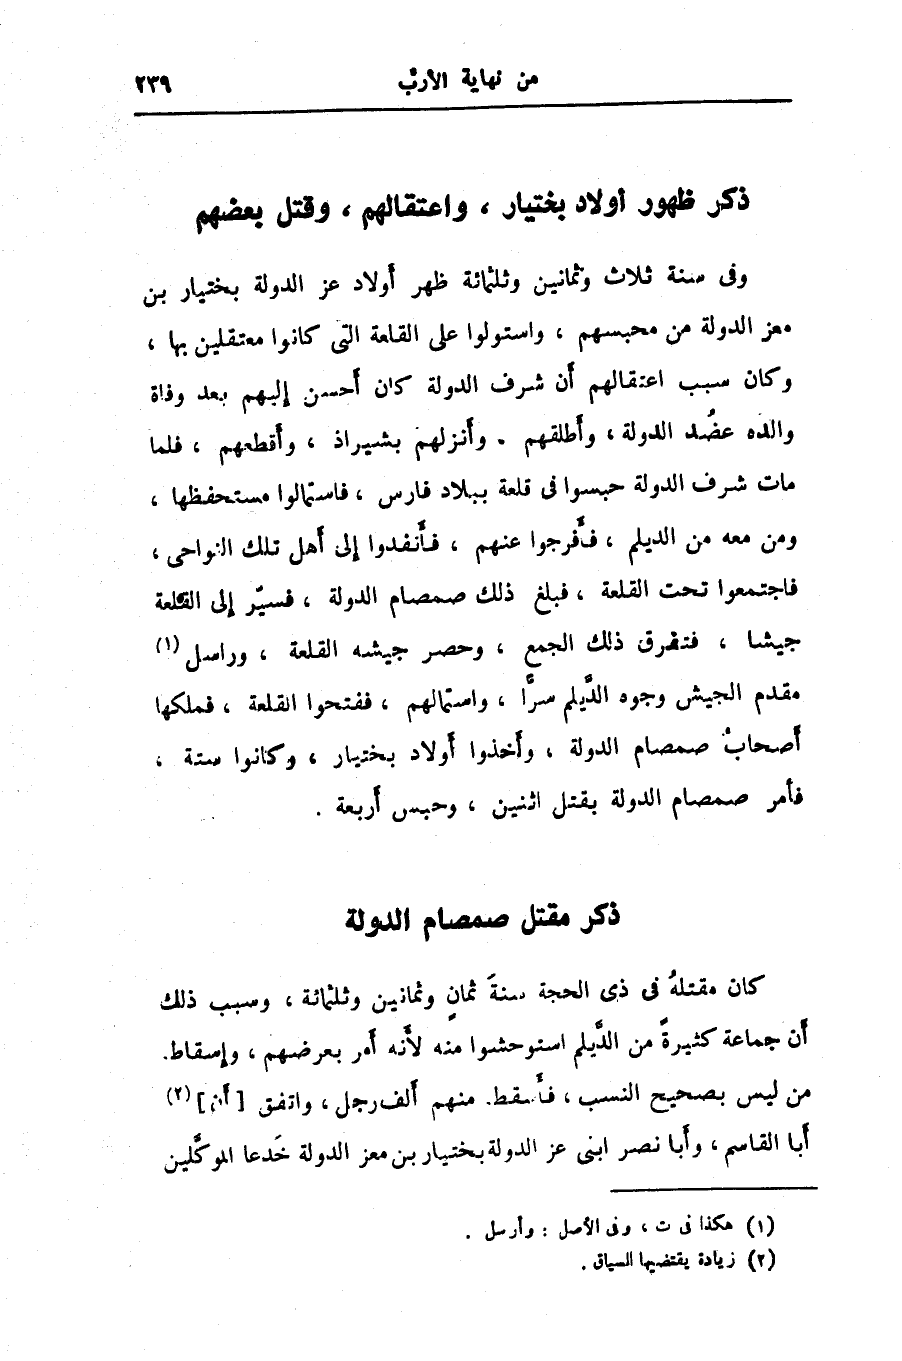 من نهاية الأرب ٢٣٩
ذكر ظهور أولاد بختيار ، واعتقالهم ، وقتل بعضهم
وفى سنة ثلاث وثمانين وثلثمائة ظهر أولاد عز الدولة بختيار بن
معز الدولة من محبسهم ، واستولوا على القلعة التى كانوا معتقلين بها ،
وكان سبب اعتقالهم أن شرف الدولة كان أحسن إليهم بعد وفاة
والده عضُد الدولة ، وأطلقهم . وأنزلهم بشيراذ ، وأقطعهم ، فلما
مات شرف الدولة حبسوا فى قلعة ببلاد فارس ، فاستمالوا مستحفظها ،
ومن معه من الديلم ، فأفرجوا عنهم ، فأنفدوا إلى أهل تلك النواحى ،
فاجتمعوا تحت القلعة ، فبلغ ذلك صمصام الدولة ، فسيّر إلى القلعة
جيشا ، فتفرق ذلك الجمع ، وحصر جيشه القلعة ، وراسل (١)
مقدم الجيش وجوه الدَّيلم سرًّا ، واستمالهم ، ففتحوا القلعة ، فملكها
أصحابُ صمصام الدولة ، وأخذوا أولاد بختيار ، وكانوا ستة ،
فأمر صمصام الدولة بقتل اثنين ، وحبس أربعة .
ذكر مقتل صمصام الدولة
كان مقتلهُ فى ذى الحجة سنةَ ثمانٍ وثمانين وثلثمائة ، وسبب ذلك
أن جماعة كثيرةً من الدَّيلم استوحشوا منه لأنه أمر بعرضهم ، وإسقاط.
من ليس بصحيح النسب ، فأسقط. منهم ألف رجل ، واتفق [ أن ] (٢)
أبا القاسم ، وأبا نصر ابنى عز الدولة بختيار بن معز الدولة خَدعا الموكَّلين
(١) هكذا فى ت ، وفى الأصل : وأرسل .
(٢) زيادة يقتضيها السياق .